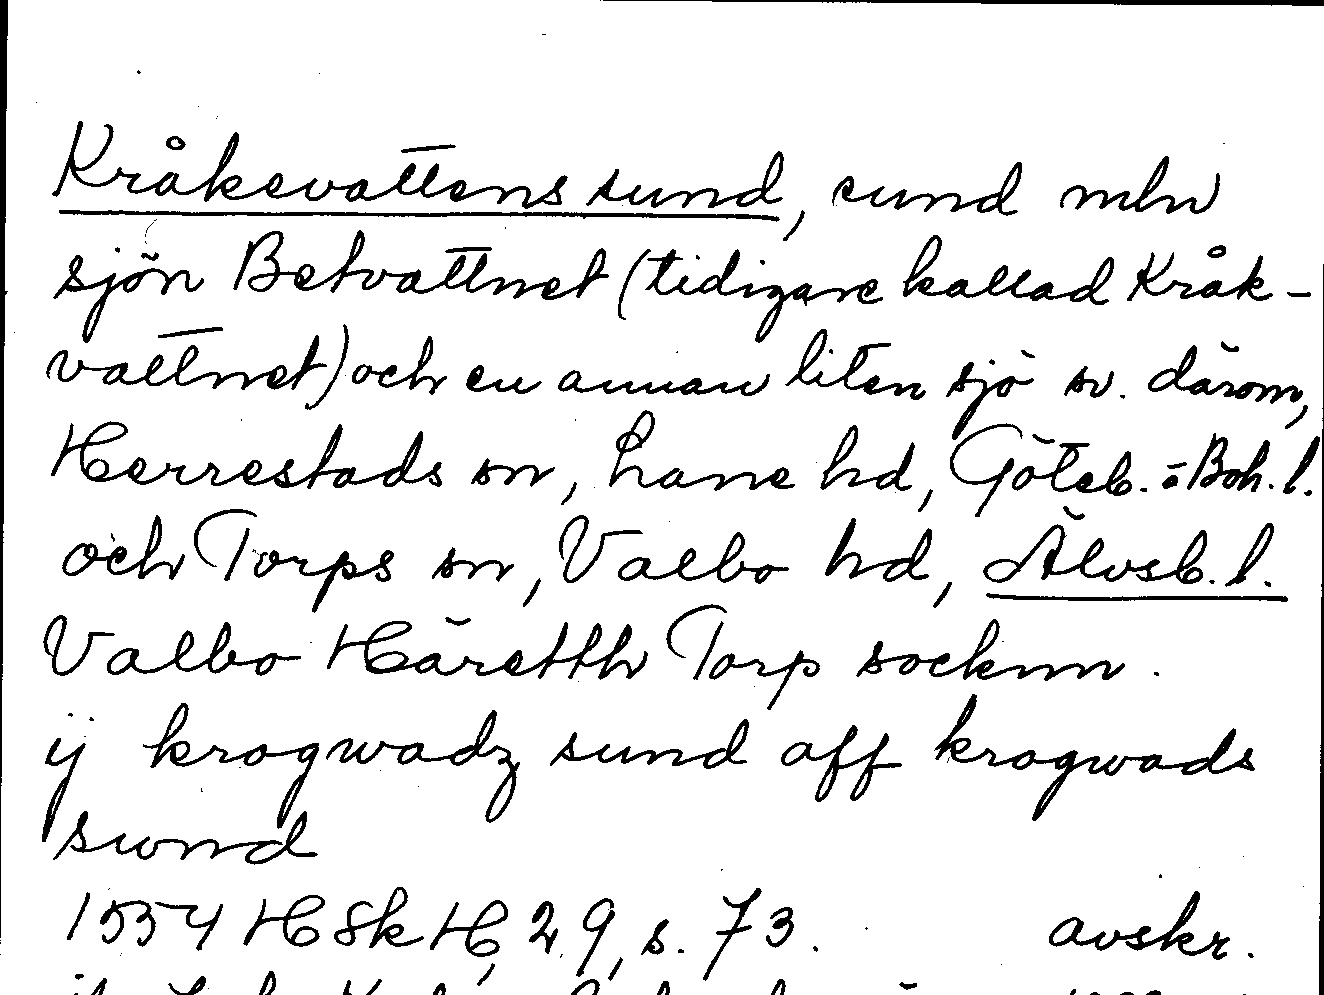 Kråkevattens sund, sund mln
sjön Betvattnet (tidigare kallad Kråk-
vattnet) och en annan liten sjö sv. därom,
Herrestads sn, Lane hd, Göteb. o Boh. l.
och Torps sn, Valbo hd, Älvsb. l.
Valbo Häretth Torp socknn.
ij krogwadz sund aff krogwads
swnd
1554 HSkH, 29, s. 73. avskr.